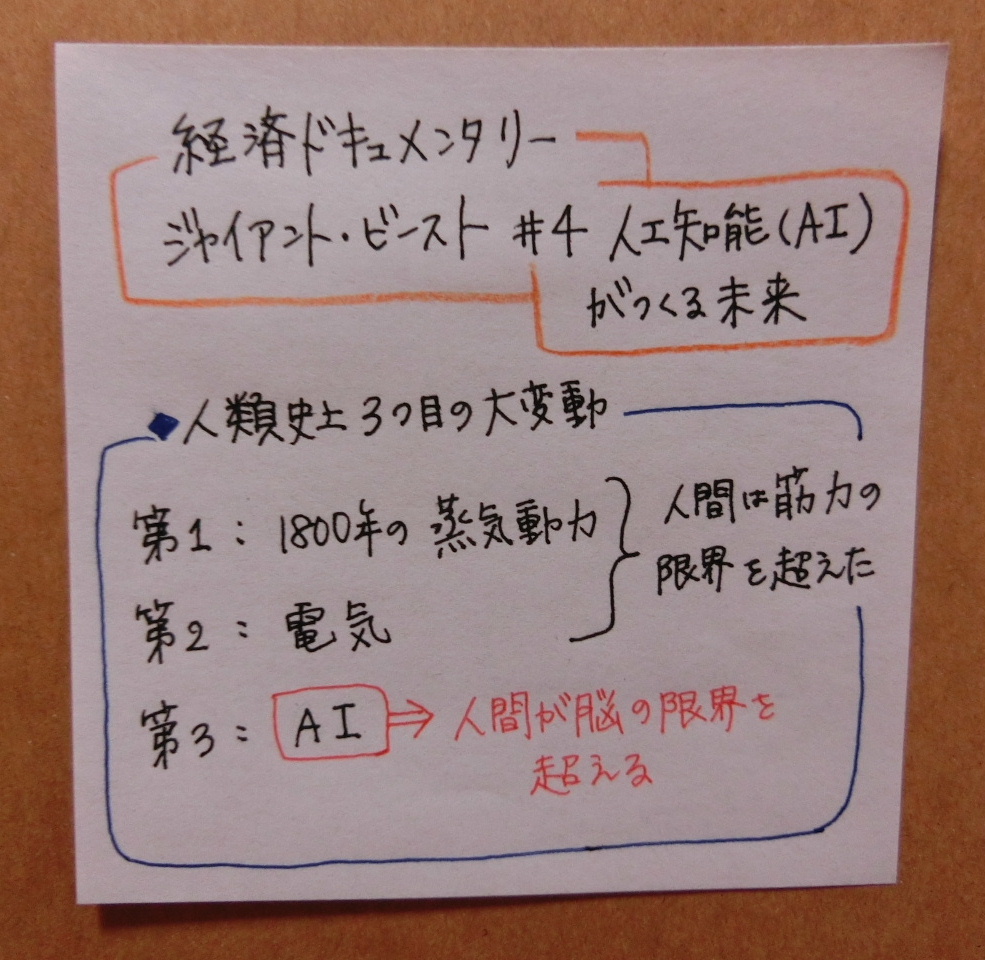 経済ドキュメンタリー
ジャイアント・ビースト #4 人工知能(AI)
がつくる未来
◆人類史上3つ目の大変動
第1: 1800年の 蒸気動力
第2: 電気
人間は筋力の
限界を超えた
第3: AI ⇒ 人間が脳の限界を
超える